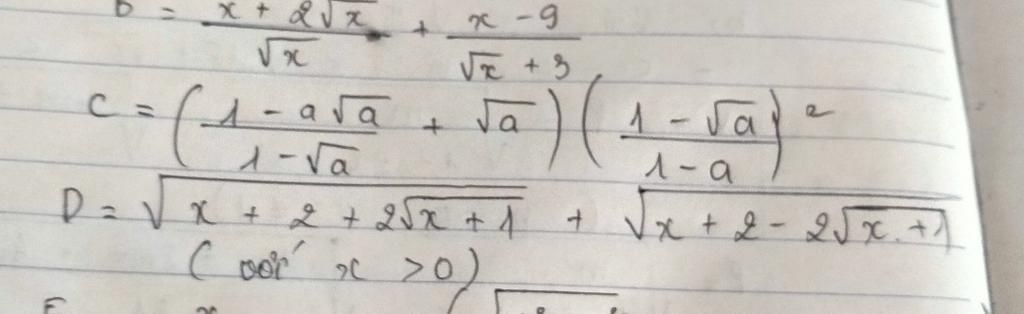 B = \frac{x + 2\sqrt{x}}{\sqrt{x}} + \frac{x - 9}{\sqrt{x} + 3}
C = \left( \frac{1 - a\sqrt{a}}{1 - \sqrt{a}} + \sqrt{a} \right) \left( \frac{1 - \sqrt{a}}{1 - a} \right)^2
D = \sqrt{x + 2 + 2\sqrt{x + 1}} + \sqrt{x + 2 - 2\sqrt{x + 1}}
(với x > 0)